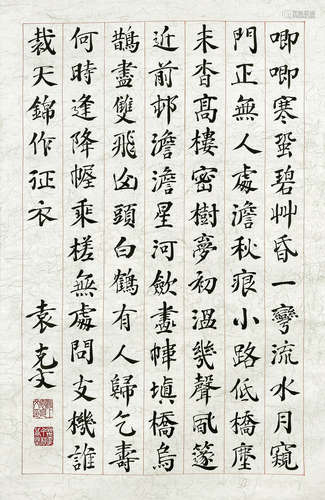 唧唧寒蛩碧艸昏一彎流水月窺
門正無人處澹秋痕小路低橋塵
未杳高樓密樹夢初溫幾聲風篴
近前邨澹澹星河歛畫㡓填橋烏
鵲盡雙飛凶頭白鶴有人歸乞壽
何時逢降幄乘槎無處問支機誰
裁天錦作征衣
袁克文